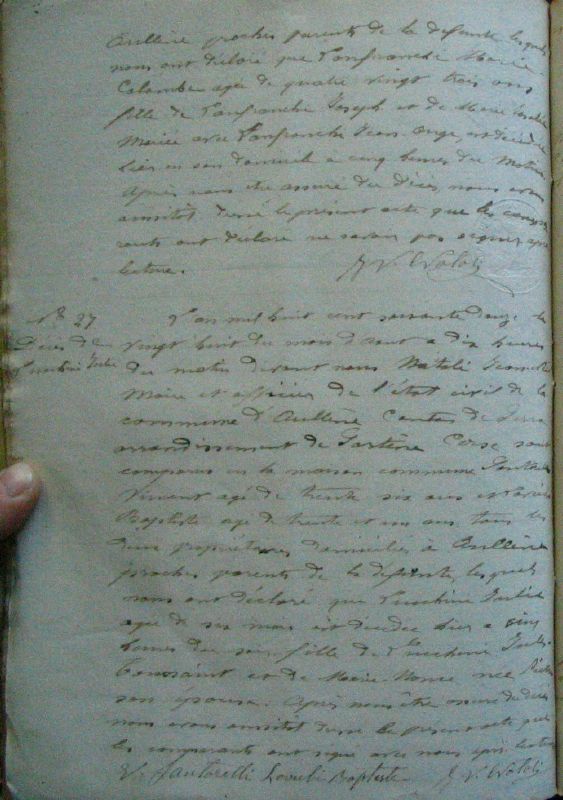 Aullène proches parents de la défunte lesquels
nous ont déclaré que Lanfranchi Marie
Colombe agée de quatre vingt trois ans
fille de Lanfranchi Joseph et de Marie
Mariée avec Lanfranchi Jean Ange, est décédée
hier en son domicile a cinq heures du Matin
Après nous être assuré du décès, nous avons
aussitôt dressé le présent acte que les compa
rants ont déclaré ne savoir pas signer après
lecture.
N° 27
Décès de
Lucchini Julie
L'an mil huit cent soixante douze le
vingt huit du mois d'Aout a dix heures
du matin devant nous Natali
Maire et officier de l'état civil de la
commune d'Aullène Canton de Serra
arrondissement de Sartène Corse sont
comparus en la maison commune
Vincent agé de trente six ans et
Baptiste agé de trente et un ans tous les
deux propriétaires domiciliés à Aullène
proches parents de la défunte, lesquels
nous ont déclaré que Lucchini Julie
agée de six mois est décédée hier a cinq
heures du soir fille de Lucchini Jules
Toussaint et de Marie née
son épouse. Après nous être assuré du décès
nous avons aussitôt dressé le présent acte que
les comparants ont signé avec nous après lecture
V. Santarelli Baptiste